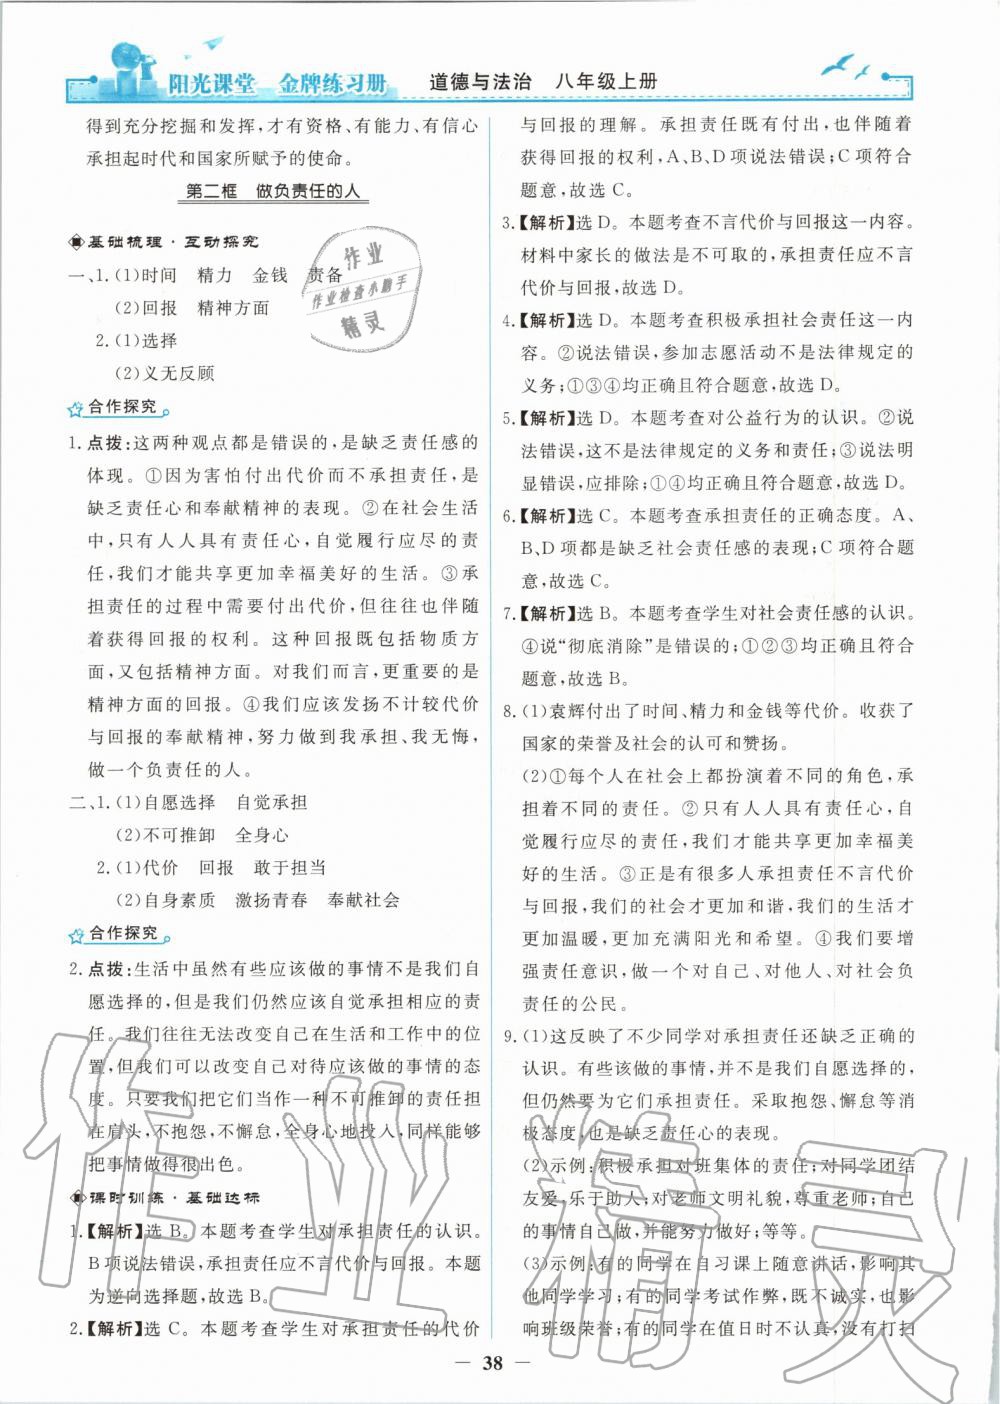 阳光课堂 金牌练习册 道德与法治 八年级上册
得到充分挖掘和发挥，才有资格、有能力、有信心
承担起时代和国家所赋予的使命。
第二框 做负责任的人
基础梳理·互动探究
一、1.(1)时间 精力 金钱 责备
(2)回报 精神方面
2.(1)选择
(2)义无反顾
合作探究
1.点拨:这两种观点都是错误的,是缺乏责任感的
体现。①因为害怕付出代价而不承担责任,是
缺乏责任心和奉献精神的表现。②在社会生活
中,只有人人具有责任心,自觉履行应尽的责
任,我们才能共享更加幸福美好的生活。③承
担责任的过程中需要付出代价,但往往也伴随
着获得回报的权利。这种回报既包括物质方
面,又包括精神方面。对我们而言,更重要的是
精神方面的回报。④我们应该发扬不计较代价
与回报的奉献精神,努力做到我承担、我无悔,
做一个负责任的人。
二、1.(1)自愿选择 自觉承担
(2)不可推卸 全身心
2.(1)代价 回报 敢于担当
(2)自身素质 激扬青春 奉献社会
合作探究
2.点拨:生活中虽然有些应该做的事情不是我们自
愿选择的,但是我们仍然应该自觉承担相应的责
任。我们往往无法改变自己在生活和工作中的位
置,但我们能够改变自己对待应该做的事情的态
度。只要我们把它们当作一种不可推卸的责任担
在肩头,不抱怨、不懈怠,全身心地投入,同样能够
把事情做得很出色。
课时训练·基础达标
1.【解析】选B。本题考查学生对承担责任的认识。
B项说法错误,承担责任可能付出代价与回报。本题
为逆向选择题,故选B。
2.【解析】选C。本题考查学生对承担责任的代价
与回报的理解。承担责任既有付出,也伴随着
获得回报的权利,A、B、D项说法错误;C项符合
题意,故选C。
3.【解析】选D。本题考查不言代价与回报这一内容。
材料中家长的做法是不可取的,承担责任应不言
代价与回报,故选D。
4.【解析】选D。本题考查积极承担社会责任这一内
容。②说法错误,参加志愿活动不是法律规定的
义务;①③④均正确且符合题意,故选D。
5.【解析】选D。本题考查对公益行为的认识。②说
法错误,这不是法律规定的义务和责任;③说法
错误明显,应排除;①④均正确且符合题意,故选D。
6.【解析】选C。本题考查承担责任的正确态度。A、
B、D项都是缺乏社会责任感的表现;C项符合题
意,故选C。
7.【解析】选B。本题考查学生对社会责任感的认识。
④说“彻底消除”是错误的;①②③均正确且符合
题意,故选B。
8.(1)袁辉付出了时间、精力和金钱等代价。收获了
国家的荣誉及社会的认可和赞扬。
(2)①每个人在社会上都扮演着不同的角色,承
担着不同的责任。②只有人人具有责任心,自
觉履行应尽的责任,我们才能共享更加幸福美
好的生活。③正是有很多人承担责任不言代价
与回报,我们的社会才更加和谐,我们的生活才
更加温暖,更加充满阳光和希望。④我们要增
强责任意识,做一个对自己、对他人、对社会负
责任的公民。
9.(1)这反映了不少同学对承担责任还缺乏正确的
认识。有些应该做的事情,并不是我们自愿选择的,
但仍然要为它们承担责任。采取抱怨、懈怠等消
极态度,也是缺乏责任心的表现。
(2)示例:积极承担对班集体的责任;对同学团结
友爱,乐于助人;对老师文明礼貌,尊重老师;自己
的事情自己做,并能努力做好;等等。
(3)示例:有的同学在自习课上随意讲话,影响其
他同学学习;有的同学考试作弊,既不诚实,也影
响班级荣誉;有的同学在值日时不认真,没有打扫
— 38 —
作业
作业检查小助手
精灵
作业精灵